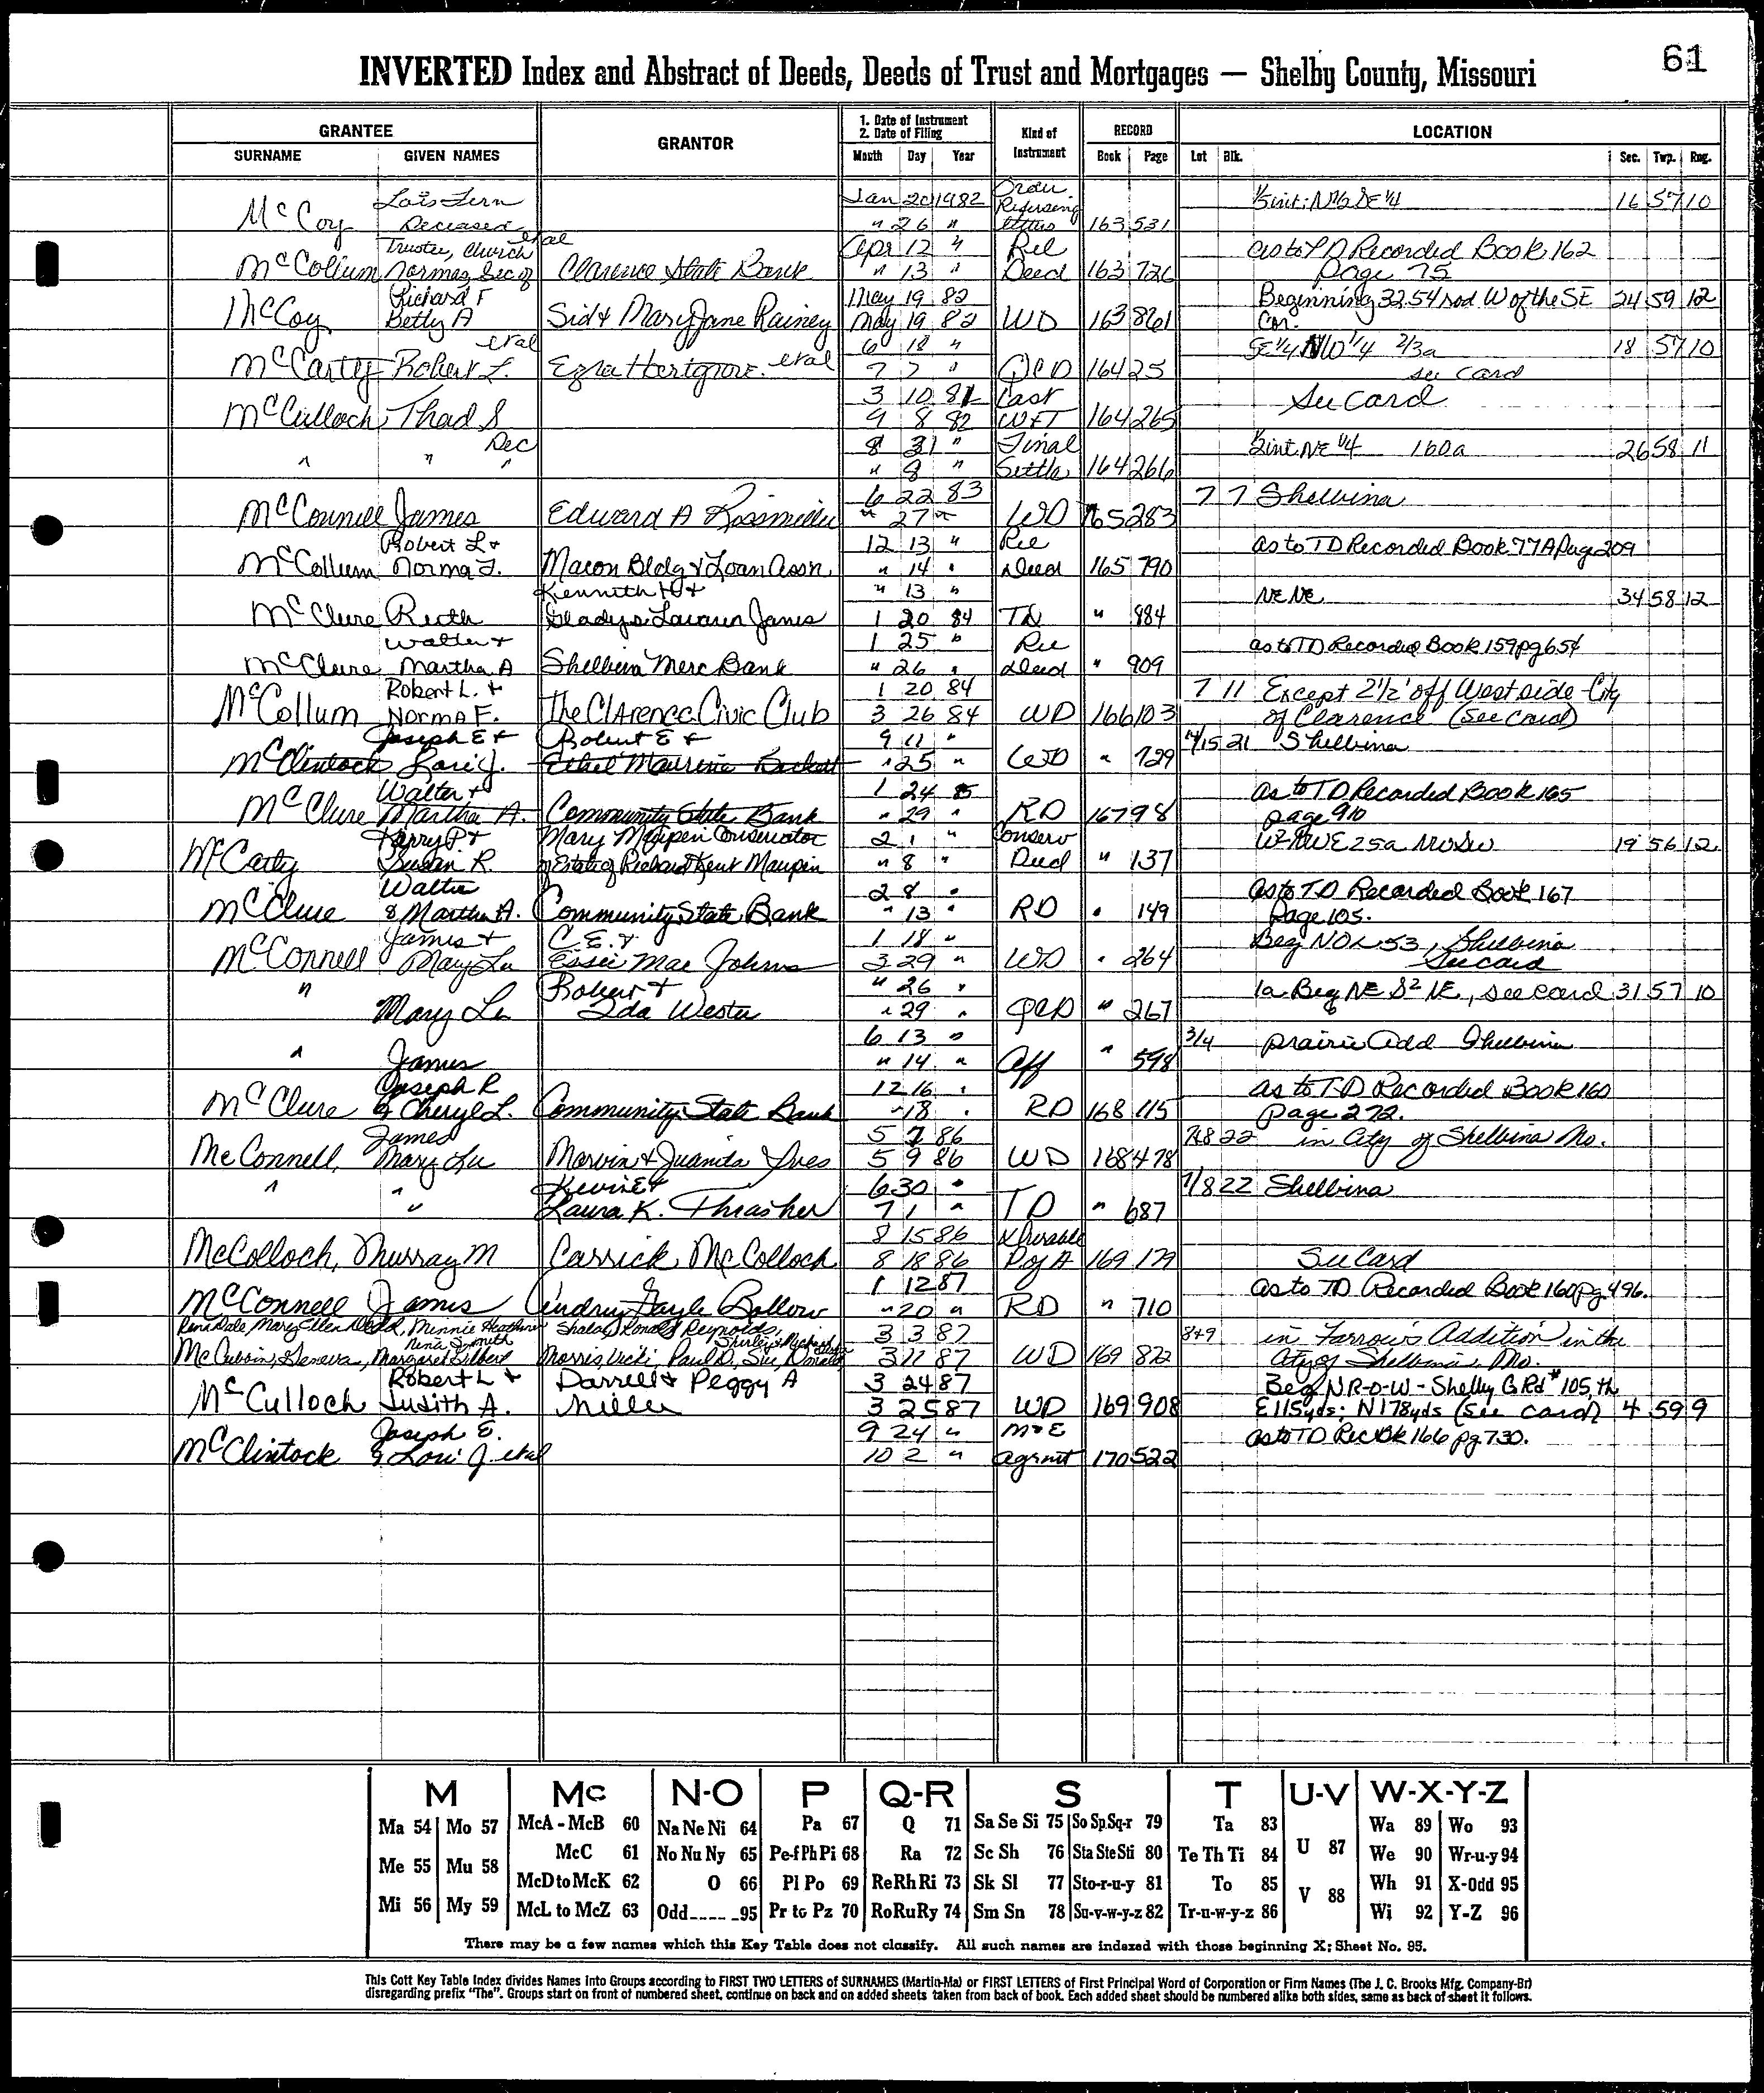 61
INVERTED Index and Abstract of Deeds, Deeds of Trust and Mortgages — Shelby County, Missouri
GRANTEE GRANTOR 1. Date of Instrument 2. Date of Filing Kind of Instrument RECORD LOCATION
SURNAME GIVEN NAMES Month Day Year Book Page Lot Blk. Sec. Twp. Rng.
Lois Fern Jan 20 1982 Order 1/2 int: N 1/2 SE 1/4 16 57 10
McCoy Deceased " 26 " Refusing letters 163 531
Trustee, Church etal Apr 12 " Rel as to TD Recorded Book 162
McCollum Norma, Sec of Clarence State Bank " 13 " Deed 163 726 Page 75
Richard F May 19 82 Beginning 32.54 rod W of the SE 24 59 12
McCoy Betty A Sid & Mary Jane Rainey May 19 82 WD 163 861 Cor.
etal 6 18 " SE 1/4 NW 1/4 2/3a 18 57 10
McCarty Robert L. Ezra Hartgrove etal 7 7 " QCD 164 25 see card
3 10 81 Last See Card
McCulloch Thad S 9 8 82 W&T 164 265
Dec 8 31 " Final 1/2 int NE 1/4 160a 26 58 11
" " " " 8 " Settle 164 266
6 22 83 7 7 Shelbina
McConnell James Edward A Rossmiller " 27 " WD 165 283
Robert L & 12 13 " Rel as to TD Recorded Book 77A Page 209
McCollum Norma F. Macon Bldg & Loan Assn. " 14 " Deed 165 790
Kenneth H & " 13 " NE NE 34 58 12
McClure Ruth Gladys Lavaun Janes 1 20 84 TD " 884
Walter & 1 25 " Rel as to TD Recorded Book 159 pg 654
McClure Martha A Shelbina Merc Bank " 26 " Deed " 909
Robert L. & 1 20 84 7 11 Except 2 1/2' off West side City
McCollum Norma F. The Clarence Civic Club 3 26 84 WD 166 103 of Clarence (See Card)
Joseph E & Robert E & 9 11 " 15 21 Shelbina
McClintock Lori J. Ethel Maurine Beckett " 25 " WD " 729
Walter & 1 24 85 as to TD Recorded Book 165
McClure Martha A. Community State Bank " 29 " RD 167 98 page 910
Larry P. & Mary Maupin Conservator 2 1 " Conserv 19 56 12
McCarty Susan R. of Estate of Richard Kent Maupin " 8 " Deed " 137
Walter 2 8 " as to TD Recorded Book 167
McClure & Martha A. Community State Bank " 13 " RD " 149 Page 105.
James & C.E. & 1 18 " Beg NO L 53, Shelbina
McConnell Mary Lu Essie Mae Johns 3 29 " WD " 264 See card
" Robert & " 26 " 1a Beg NE S2 NE, see card 31 57 10
Mary Lu Ida Wester " 29 " QCD " 267
6 13 " 3/4 prairie Add Shelbina
" James " 14 " Aff " 598
Joseph R 12 16 " as to TD Recorded Book 160
McClure & Cheryl L. Community State Bank " 18 " RD 168 115 page 272.
James 5 7 86 7&8 22 in City of Shelbina Mo.
McConnell, Mary Lu Marvin & Juanita Ives 5 9 86 WD 168 478
" " Kevin E & 6 30 " 7/8 22 Shelbina
" Laura K. Thrasher 7 1 " TD " 687
8 15 86 Durable
McColloch, Murray M Carrick McColloch 8 18 86 P of A 169 179 See Card
1 12 87 as to TD Recorded Book 160 pg 496.
McConnell James Andrew Gayle Ballow " 20 " RD " 710
Mary Ellen Minnie Ronald Reynolds, 3 3 87 8+9 in Farrow's Addition in the
Nina Smith Shirley & Richard
McCubbin, Geneva, Margaret Gilbert Morris, Vicki, Paul D, Sue, Donald 3 11 87 WD 169 822 City of Shelbina, Mo.
Robert L & Darrell & Peggy A 3 24 87 Beg N R-O-W - Shelby Co Rd #105, th
McCulloch Judith A. Miller 3 25 87 WD 169 908 E 115yds; N 178yds (See card) 4 59 9
Joseph E. 9 24 " M&E as to TD Rec Bk 166 pg 730.
McClintock & Lori J. etal 10 2 " agrmt 170 522
M Mc N-O P Q-R S T U-V W-X-Y-Z
Ma 54 Mo 57 McA - McB 60 Na Ne Ni 64 Pa 67 Q 71 Sa Se Si 75 So Sp.Sq-r 79 Ta 83 U 87 Wa 89 Wo 93
Me 55 Mu 58 McC 61 No Nu Ny 65 Pe-f Ph Pi 68 Ra 72 Sc Sh 76 Sta Ste Sti 80 Te Th Ti 84 V 88 We 90 Wr-u-y 94
McD to McK 62 O 66 Pl Po 69 Re Rh Ri 73 Sk Sl 77 Sto-r-u-y 81 To 85 Wh 91 X-Odd 95
Mi 56 My 59 McL to McZ 63 Odd 95 Pr to Pz 70 Ro Ru Ry 74 Sm Sn 78 Su-v-w-y-z 82 Tr-u-w-y-z 86 Wi 92 Y-Z 96
There may be a few names which this Key Table does not classify. All such names are indexed with those beginning X; Sheet No. 95.
This Cott Key Table Index divides Names into Groups according to FIRST TWO LETTERS of SURNAMES (Martin-Ma) or FIRST LETTERS of First Principal Word of Corporation or Firm Names (The J. C. Brooks Mfg. Company-Br)
disregarding prefix "The". Groups start on front of numbered sheet, continue on back and on added sheets taken from back of book. Each added sheet should be numbered alike both sides, same as back of sheet it follows.